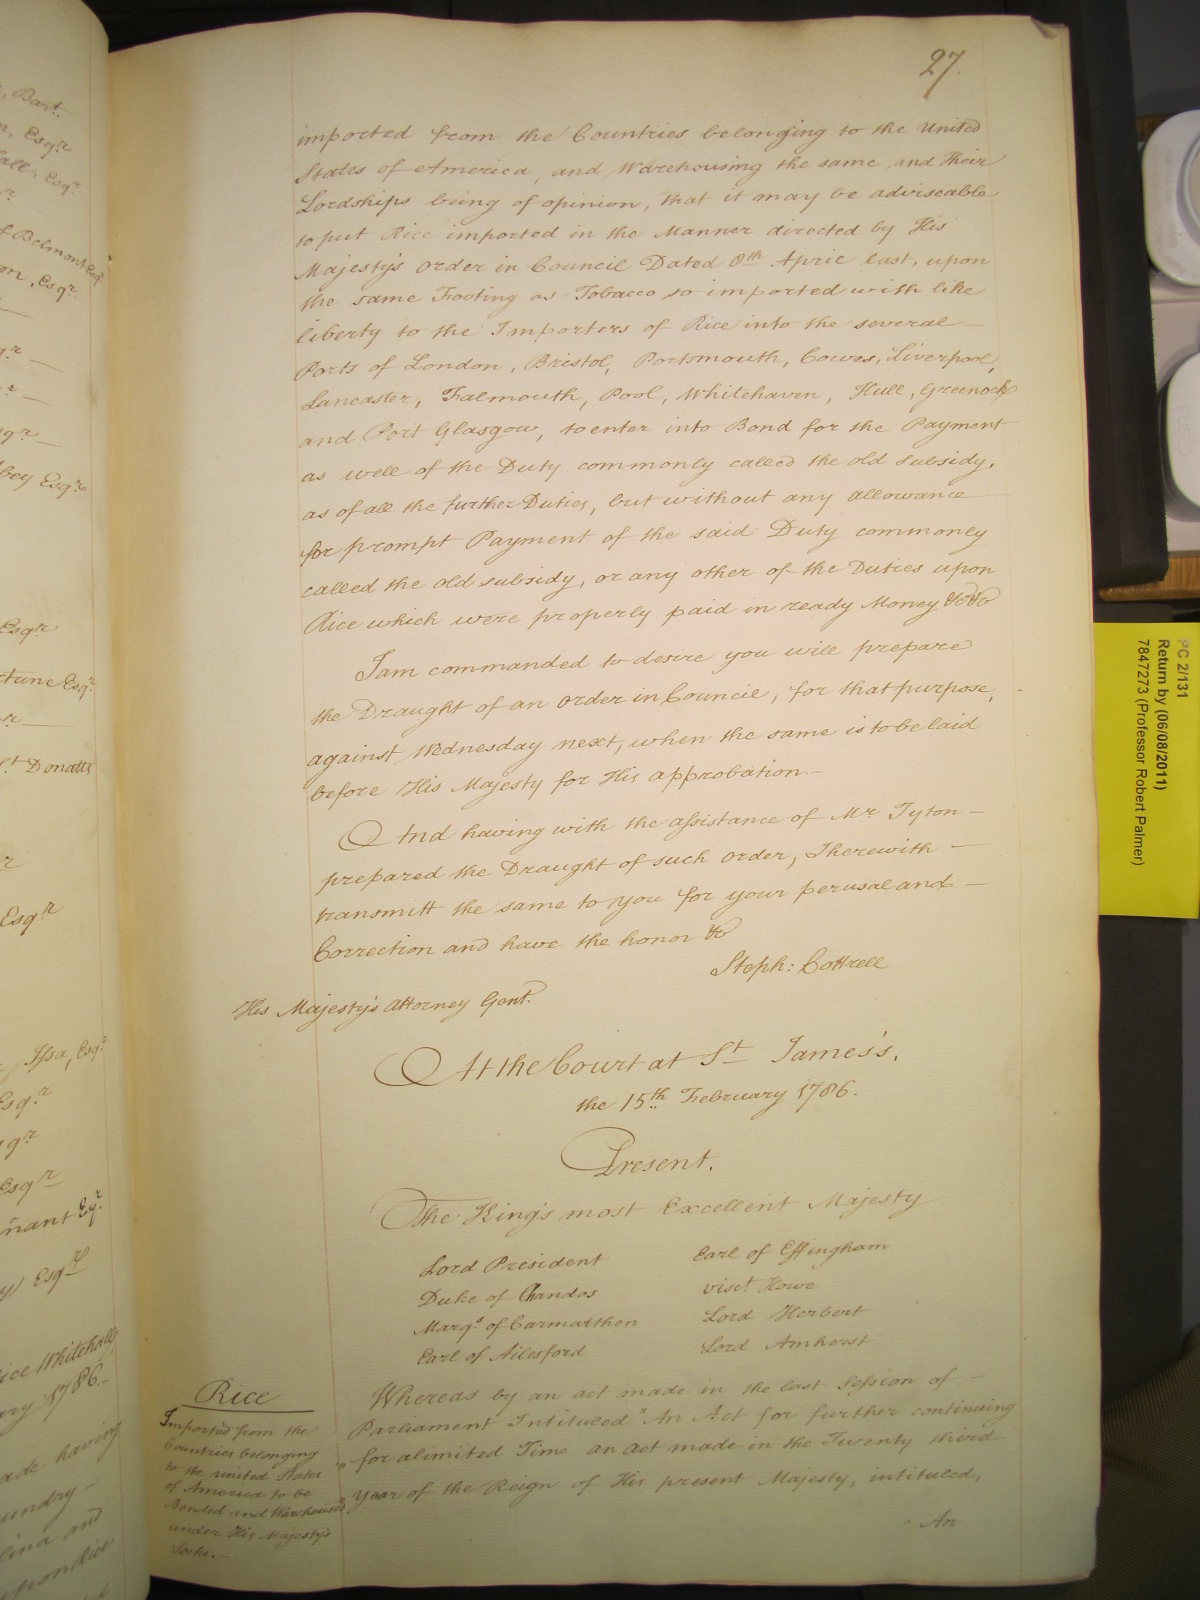 27.
imported from the Countries belonging to the United
States of America, and Warehousing the same, and Their
Lordships being of opinion, that it may be adviseable
to put Rice imported in the Manner directed by His
Majesty's Order in Council Dated 8th April last, upon
the same Footing as Tobacco so imported with like
liberty to the Importers of Rice into the several
Ports of London, Bristol, Portsmouth, Cowes, Liverpool,
Lancaster, Falmouth, Pool, Whitehaven, Hull, Greenock
and Port Glasgow, to enter into Bond for the Payment
as well of the Duty commonly called the old subsidy,
as of all the further Duties, but without any allowance
for prompt Payment of the said Duty commonly
called the old subsidy, or any other of the Duties upon
Rice which were properly paid in ready Money &c &c
I am commanded to desire you will prepare
the Draught of an Order in Council, for that purpose,
against Wednesday next, when the same is to be laid
before His Majesty for His approbation.—
And having with the assistance of Mr Tyton —
prepared the Draught of such Order, I herewith —
transmitt the same to you for your perusal and —
Correction and have the honor &c
Steph: Cottrell
His Majesty's Attorney Genl.
At the Court at St James's,
the 15th February 1786.
Present.
The King's most Excellent Majesty
Lord President
Earl of Effingham
Duke of Chandos
Visct Howe
Marqs of Carmarthen
Lord Herbert
Earl of Ailesford
Lord Amherst
Rice
Imported from the
Countries belonging
to the united States
of America to be
Bonded and Warehoused
under His Majesty's
Locks.—
Whereas by an act made in the last Session of —
Parliament Intituled "An Act for further continuing
" for a limited Time an act made in the Twenty third
" year of the Reign of His present Majesty, intituled,
" An
, Bart.
Esqr
all, Esqr
f Belmont Esqr
on, Esqr
bey Esqr
Esqr
ctune Esqr
St Donatts
Esqr
Issa, Esqr
Esqr
Esqr
nant Eqr
Esqr
ice Whitehall
ary 1786.—
ade having
undry —
lina and
PC 2/131
Return by (06/08/2011)
7847273 (Professor Robert Palmer)